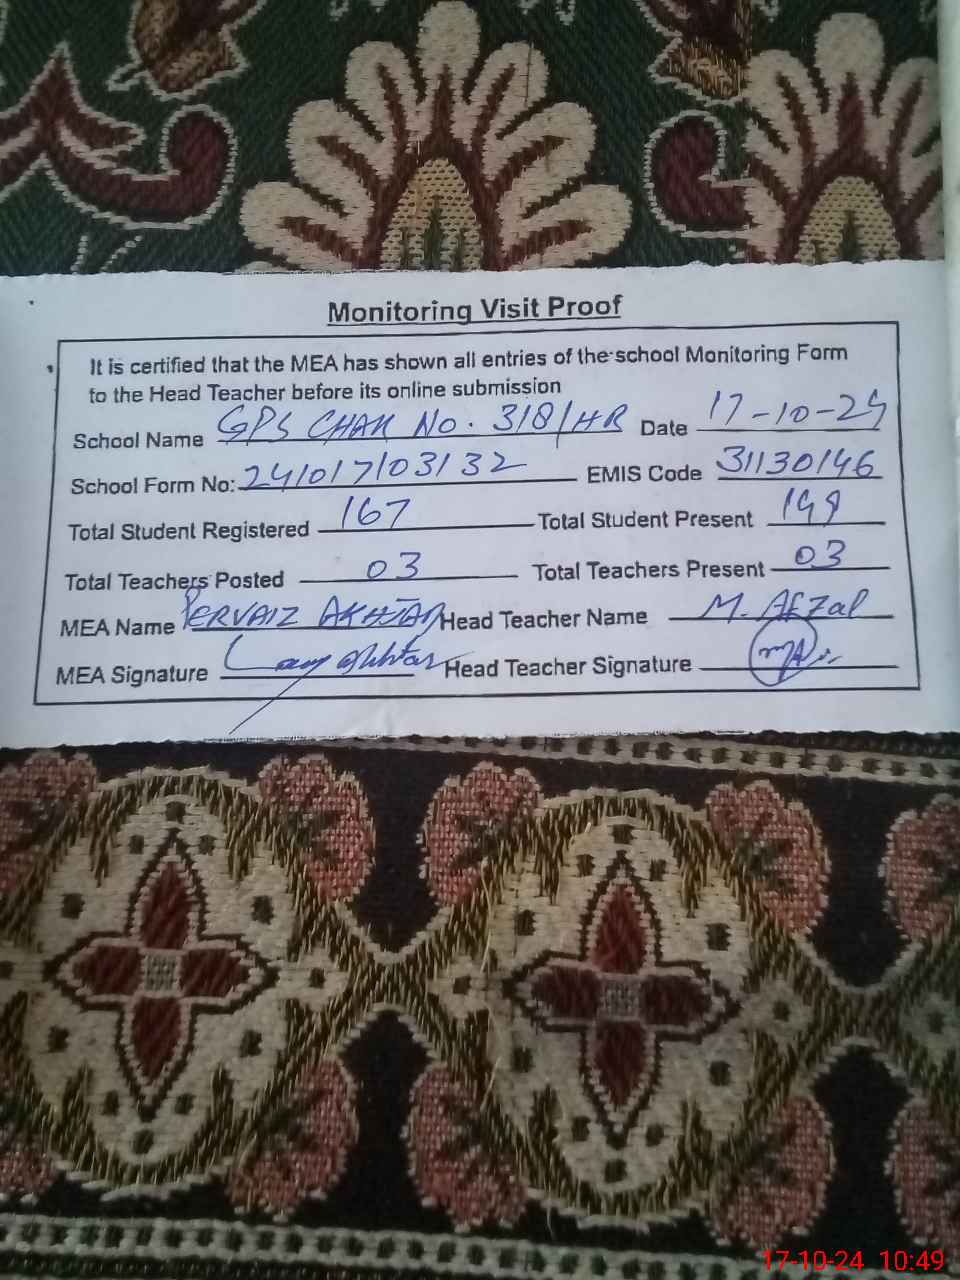 Monitoring Visit Proof
It is certified that the MEA has shown all entries of the school Monitoring Form
to the Head Teacher before its online submission
School Name GPS CHAK No. 318/HR Date 17-10-24
School Form No: 241017103132 EMIS Code 31130146
Total Student Registered 167 Total Student Present
Total Teachers Posted 03 Total Teachers Present 03
MEA Name PERVAIZ AKHTAR Head Teacher Name M. AFZal
MEA Signature Head Teacher Signature
17-10-24 10:49